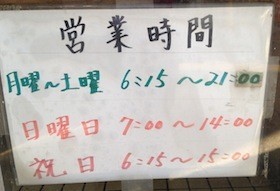 営業時間
月曜～土曜 6:15～21:00
日曜日 7:00～14:00
祝日 6:15～15:00